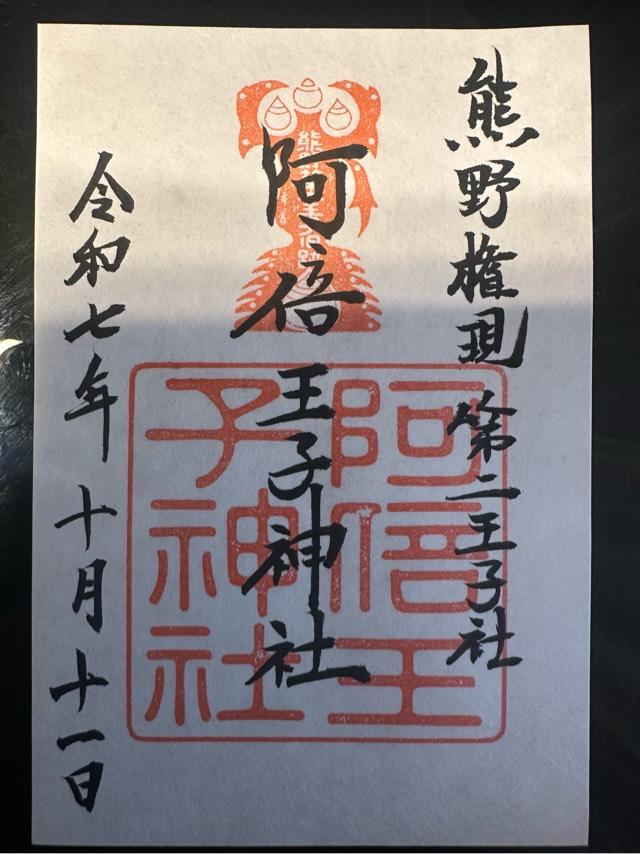 熊野権現 第二王子社
阿倍王子神社
令和七年 十月 十一日
阿倍王
子神社